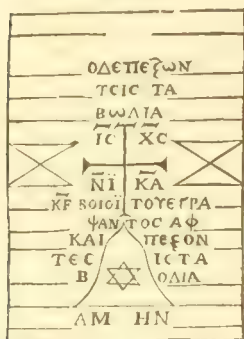 ΟΔΕΠΕΖΩΝ
ΤϹΙϹ ΤΑ
ΒΩΛΙΑ
ΙϹ ΧϹ
ΝΪ ΚΑ
ΚΕ ΒΟΙΟΪ ΤΟΥΕΓΡΑ
ΨΑΝΤΟϹ ΑΦ
ΚΑΙ ΠΕΞΟΝ
ΤΕϹ ΙϹΤΑ
Β ΟΔΙΑ
ΑΜ ΗΝ